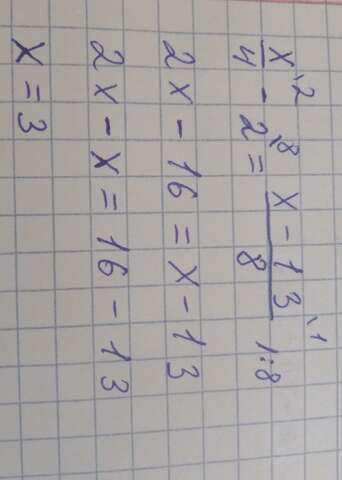 x/4 \2 - 2 \8 = x - 13/8 \1 | :8
2x - 16 = x - 13
2x - x = 16 - 13
x = 3